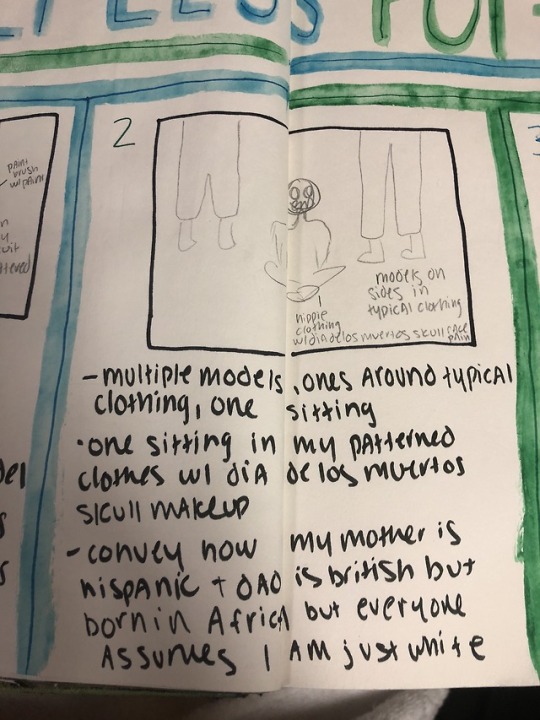 2
paint
brush
w/paint
models on
sides in
typical clothing
hippie
clothing
w/dia de los muertos skull face
paint
- multiple models, ones around typical
clothing, one sitting
• one sitting in my patterned
clothes w/ dia de los muertos
skull makeup
- convey how my mother is
hispanic + dad is british but
born in Africa but everyone
assumes I am just white